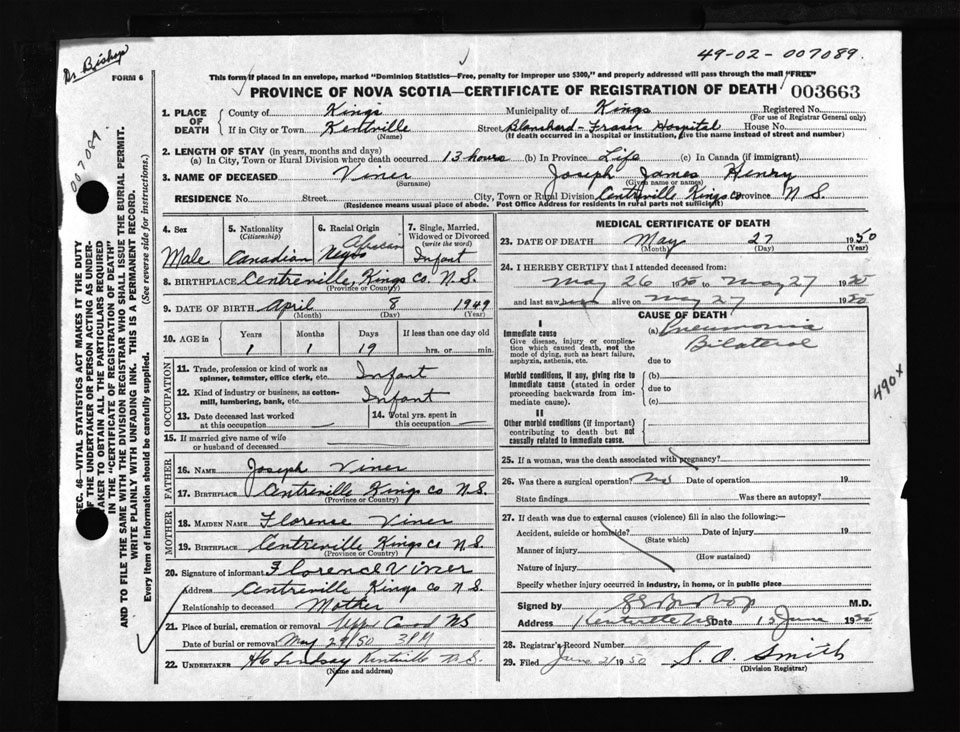 Dr Bishop
49-02-007089.
FORM 6
This form if placed in an envelope, marked "Dominion Statistics—Free, penalty for improper use $300," and properly addressed will pass through the mail "FREE"
PROVINCE OF NOVA SCOTIA—CERTIFICATE OF REGISTRATION OF DEATH 003663
007089
SEC. 46—VITAL STATISTICS ACT MAKES IT THE DUTY
OF THE UNDERTAKER OR PERSON ACTING AS UNDER-
TAKER TO OBTAIN ALL THE PARTICULARS REQUIRED
IN THE "CERTIFICATE OF REGISTRATION OF DEATH"
AND TO FILE THE SAME WITH THE DIVISION REGISTRAR WHO SHALL ISSUE THE BURIAL PERMIT.
WRITE PLAINLY WITH UNFADING INK. THIS IS A PERMANENT RECORD.
Every item of information should be carefully supplied. (See reverse side for instructions.)
1. PLACE OF DEATH
County of Kings Municipality of Kings Registered No.
(For use of Registrar General only)
If in City or Town Kentville Street Blanchard-Fraser Hospital House No.
(Name) (If death occurred in a hospital or institution, give the name instead of street and number)
2. LENGTH OF STAY (in years, months and days)
(a) In City, Town or Rural Division where death occurred 13 hours (b) In Province Life (c) In Canada (if immigrant)
3. NAME OF DECEASED Viner Joseph James Henry
(Surname) (Given name or names)
RESIDENCE No. Street City, Town or Rural Division Centreville Kings co Province N.S.
(Residence means usual place of abode. Post Office Address for residents in rural parts not sufficient)
4. Sex Male
5. Nationality (Citizenship) Canadian
6. Racial Origin African Negro
7. Single, Married, Widowed or Divorced (write the word) Infant
8. BIRTHPLACE Centreville, Kings Co. N.S.
(Province or Country)
9. DATE OF BIRTH April 8 1949
(Month) (Day) (Year)
10. AGE in Years Months Days If less than one day old
1 1 19 hrs. or min.
OCCUPATION
11. Trade, profession or kind of work as
spinner, teamster, office clerk, etc. Infant
12. Kind of industry or business, as cotton-
mill, lumbering, bank, etc. Infant
13. Date deceased last worked
at this occupation
14. Total yrs. spent in
this occupation
15. If married give name of wife
or husband of deceased
FATHER
16. NAME Joseph Viner
17. BIRTHPLACE Centreville Kings co N.S.
(Province or Country)
MOTHER
18. MAIDEN NAME Florence Viner
19. BIRTHPLACE Centreville Kings Co N.S.
(Province or Country)
20. Signature of informant Florence Viner
Address Centreville Kings co N.S.
Relationship to deceased Mother
21. Place of burial, cremation or removal NS
Date of burial or removal May 29/50 3 PM
22. UNDERTAKER Lindsay Kentville N.S.
(Name and address)
MEDICAL CERTIFICATE OF DEATH
23. DATE OF DEATH May 27 1950
(Month) (Day) (Year)
24. I HEREBY CERTIFY that I attended deceased from:
May 26 1950 to May 27 1950
and last saw alive on May 27 1950
CAUSE OF DEATH
I
Immediate cause
Give disease, injury or complica-
tion which caused death, not the
mode of dying, such as heart failure,
asphyxia, asthenia, etc.
(a) Pneumonia
Bilateral
due to
Morbid conditions, if any, giving rise to
immediate cause (stated in order
proceeding backwards from im-
mediate cause).
(b)
due to
(c)
II
Other morbid conditions (if important)
contributing to death but not
causally related to immediate cause.
490x
25. If a woman, was the death associated with pregnancy?
26. Was there a surgical operation? No Date of operation 19
State findings Was there an autopsy?
27. If death was due to external causes (violence) fill in also the following:—
Accident, suicide or homicide? Date of injury 19
(State which)
Manner of injury
(How sustained)
Nature of injury
Specify whether injury occurred in industry, in home, or in public place
Signed by Bishop M.D.
Address Kentville NS Date 15 June 1950
28. Registrar's Record Number
29. Filed June 21 1950 S. A. Smith
(Division Registrar)